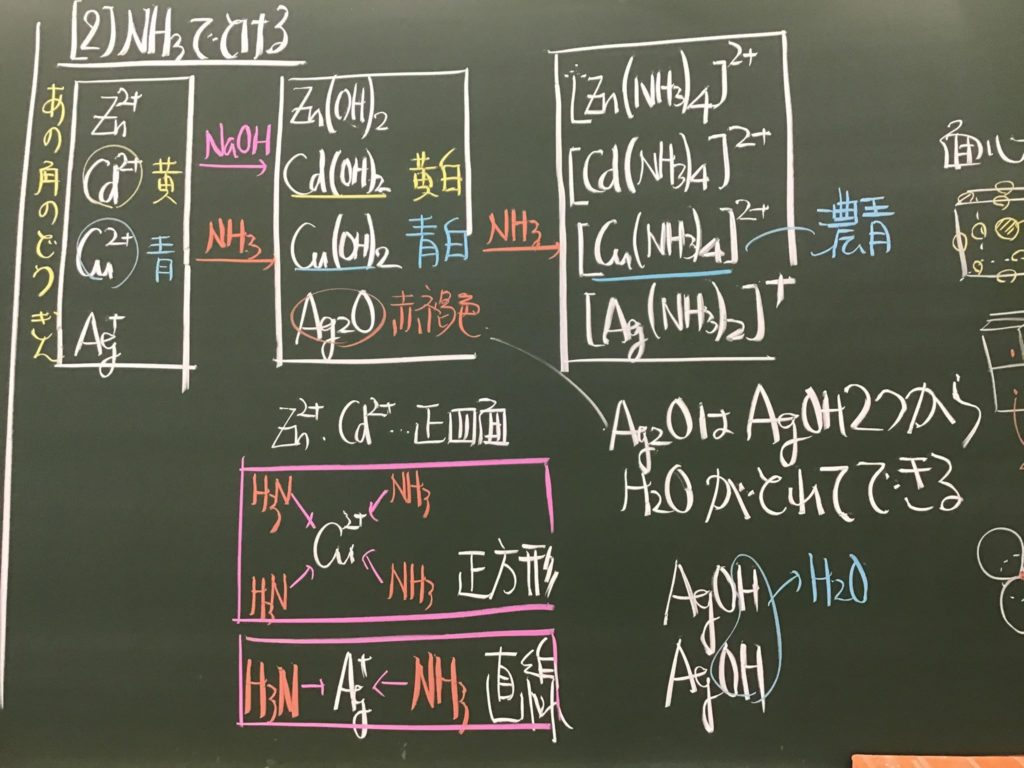 [2] NH₃でとける
あの角のどうぎん
Zn²⁺
Cd²⁺ 黄
Cu²⁺ 青
Ag⁺
NaOH
NH₃
Zn(OH)₂
Cd(OH)₂ 黄白
Cu(OH)₂ 青白
Ag₂O 赤褐色
NH₃
[Zn(NH₃)₄]²⁺
[Cd(NH₃)₄]²⁺
[Cu(NH₃)₄]²⁺ 濃青
[Ag(NH₃)₂]⁺
Zn²⁺, Cd²⁺…正四面
H₃N NH₃
Cu²⁺
H₃N NH₃ 正方形
H₃N Ag⁺ NH₃ 直線
Ag₂Oは AgOH2つから
H₂Oがとれてできる
AgOH H₂O
AgOH
面心